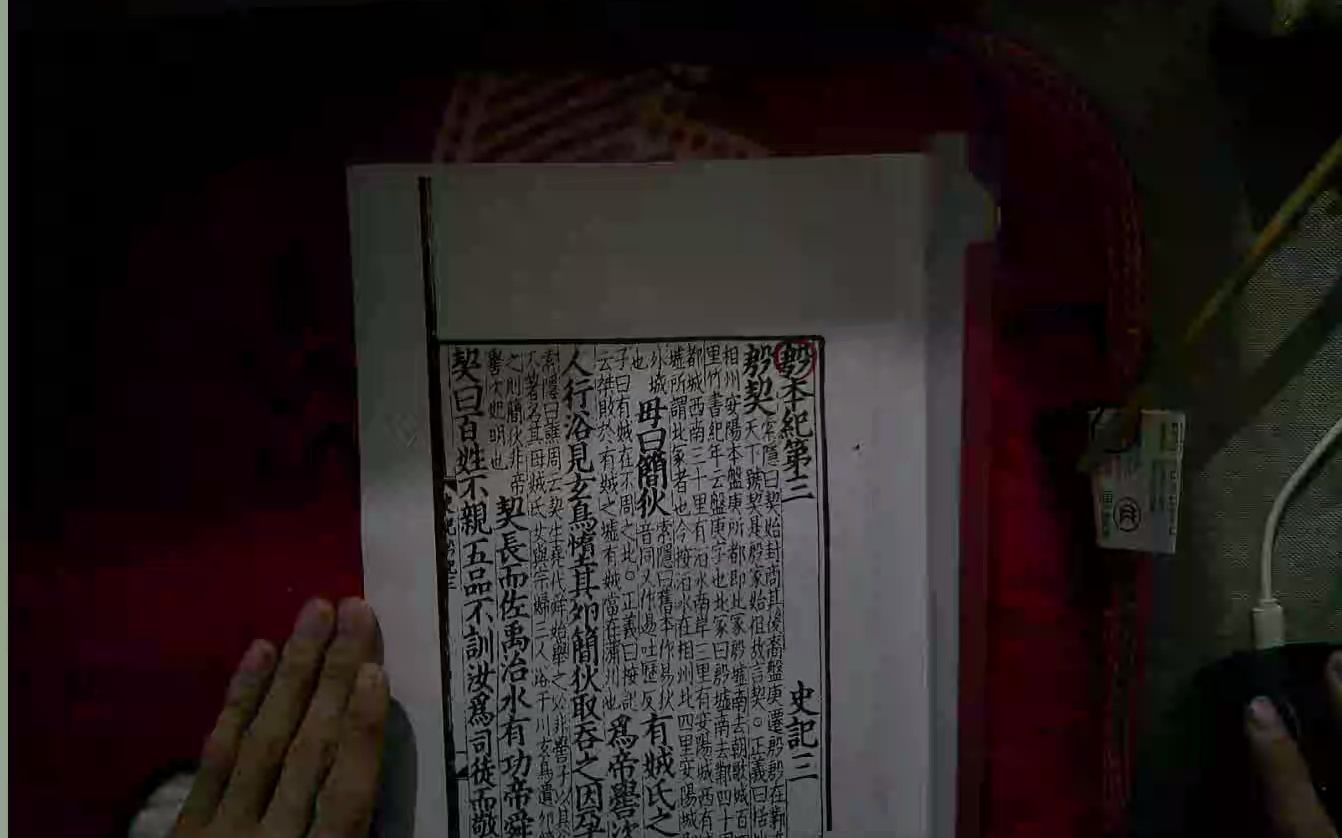 殷本紀第三 史記三
殷契
索隱曰契始封商其後裔盤庚遷殷殷在鄴
天下號契是殷家始祖故言契○正義曰括
相州安陽本盤庚所都即北冢殷墟南去朝歌城百
里竹書紀年云盤庚
北冢曰殷墟南去鄴四十
都城西南三十里有洹水南岸三里有安陽城西有
墟所謂北冢者也今按洹水在相州北四里安陽城
外城
也
母曰簡狄
索隱曰舊本作易狄
音同又作逷吐歷反
有娀氏之
子曰有娀在不周之北○正義曰按記
云桀敗於有娀之墟有娀當在蒲州也
爲帝嚳次
人行浴見玄鳥墮其卵簡狄取吞之因孕
索隱曰譙周云契生堯代舜始舉之必非嚳子以其
父著名其母娀氏女與宗婦二人浴于川玄鳥遺卵
之則簡狄非帝
嚳次妃明也
契長而佐禹治水有功帝舜
契曰百姓不親五品不訓汝爲司徒而敬